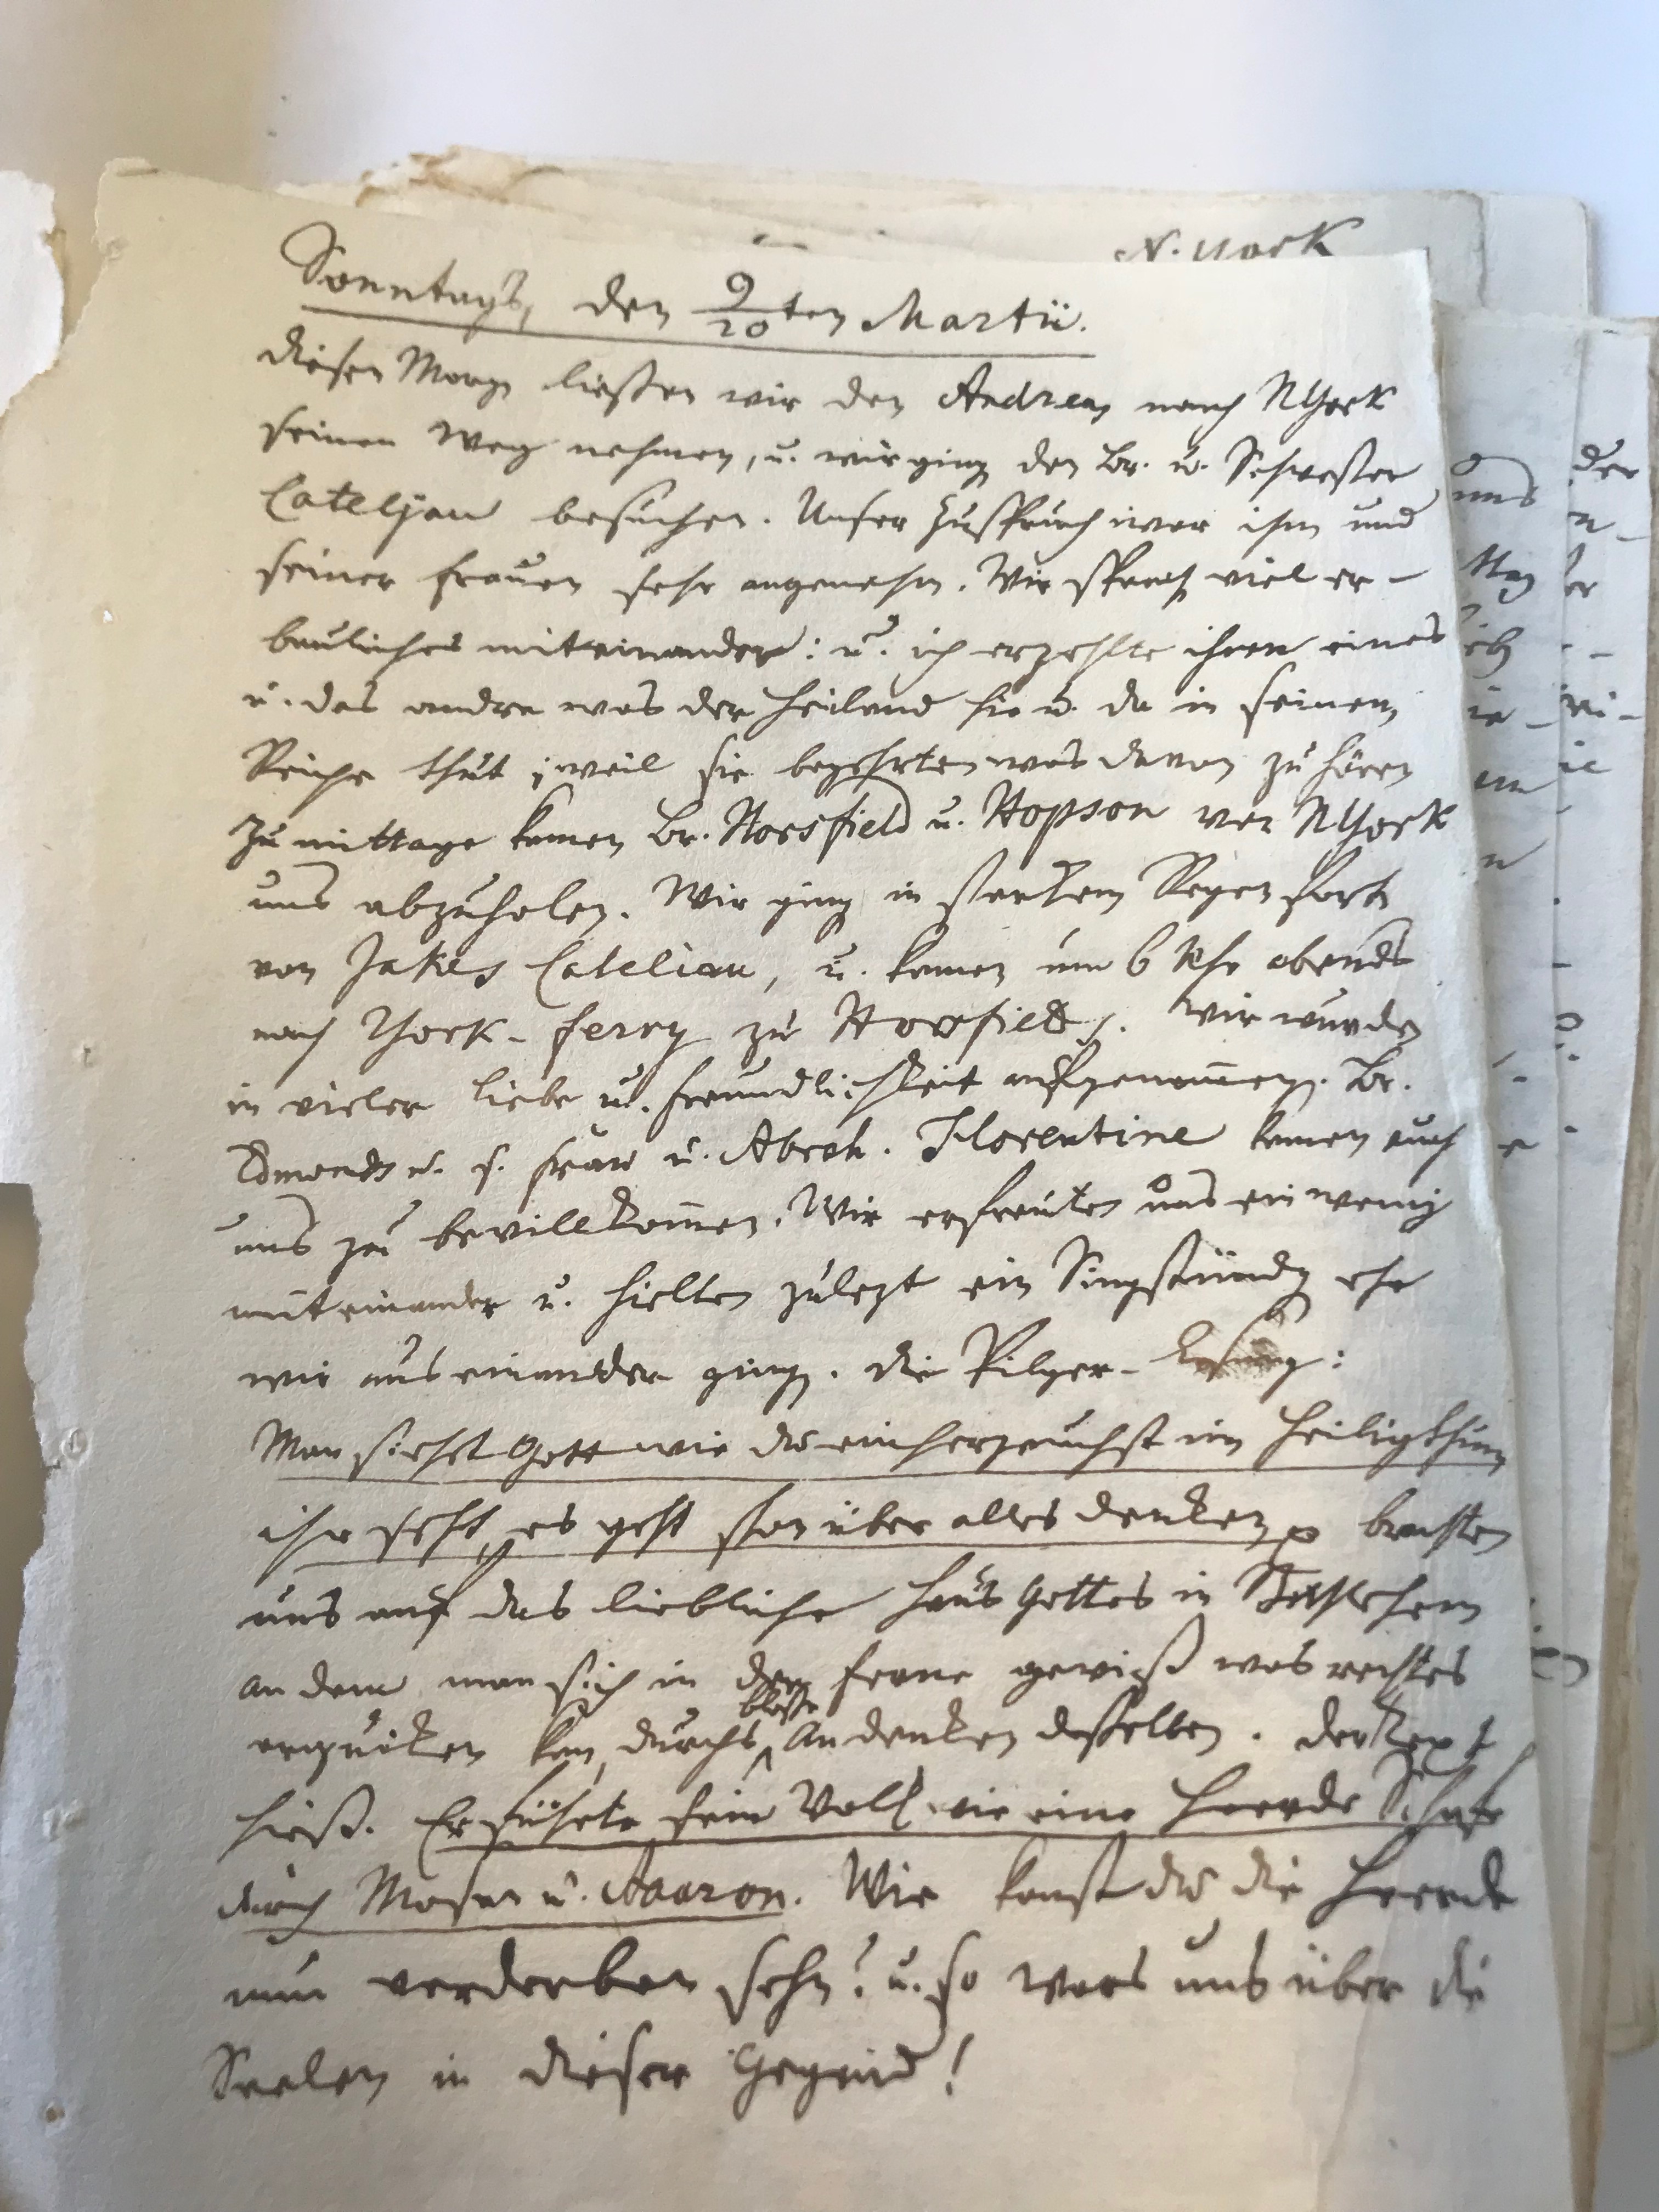 N. York
Sonntags, den 9/20ten Martii.
Diesen Morgen ließen wir den Andreas nach NYork
seinen Weg nehmen, u. wir ging den Br. u. Schwester
Cateljau besuchen. Unser Zuspruch war ihm und
seiner Frauen sehr angenehm. Wir sprach viel er-
bauliches miteinander: u. ich erzehlte ihnen eines
u. das andre was der Heiland hie u. da in seinem
Reiche thut; weil sie begehrten was davon zu hören
Zu mittage kamen Br. Horsfield u. Hopson von NYork
uns abzuholen. Wir ging in starkem Regen fort
von Jakes Cateliau, u. kamen um 6 Uhr abends
nach York-ferry zu Horsfields. Wir wurden
in vieler Liebe u. Freundlichkeit aufgenommen. Br.
Edmonds u. s. Frau u. Abrah. Florentine kamen auch
uns zu bewillkomen. Wir erfreuten uns ein wenig
miteinander u. hielten zulezt ein Singstündg ehe
wir aus einander ging. Die Pilger-Losung:
Man siehet Gott wie du einherzeuchst im Heiligthum
ihr seht, es geht schon über alles denken brachten
uns auf das liebliche Haus Gottes in Bethlehem
an dem man sich in der Ferne gewiß was rechtes
erquiken kan, durchs bloße Andenken desselben. Der Text
hieß. Er führete sein Volk wie eine Heerde Schafe
durch Mosen u. Aaaron. Wie kanst du die Heerde
nun verderben sehn? u. so wars uns über die
Seelen in dieser Gegend!